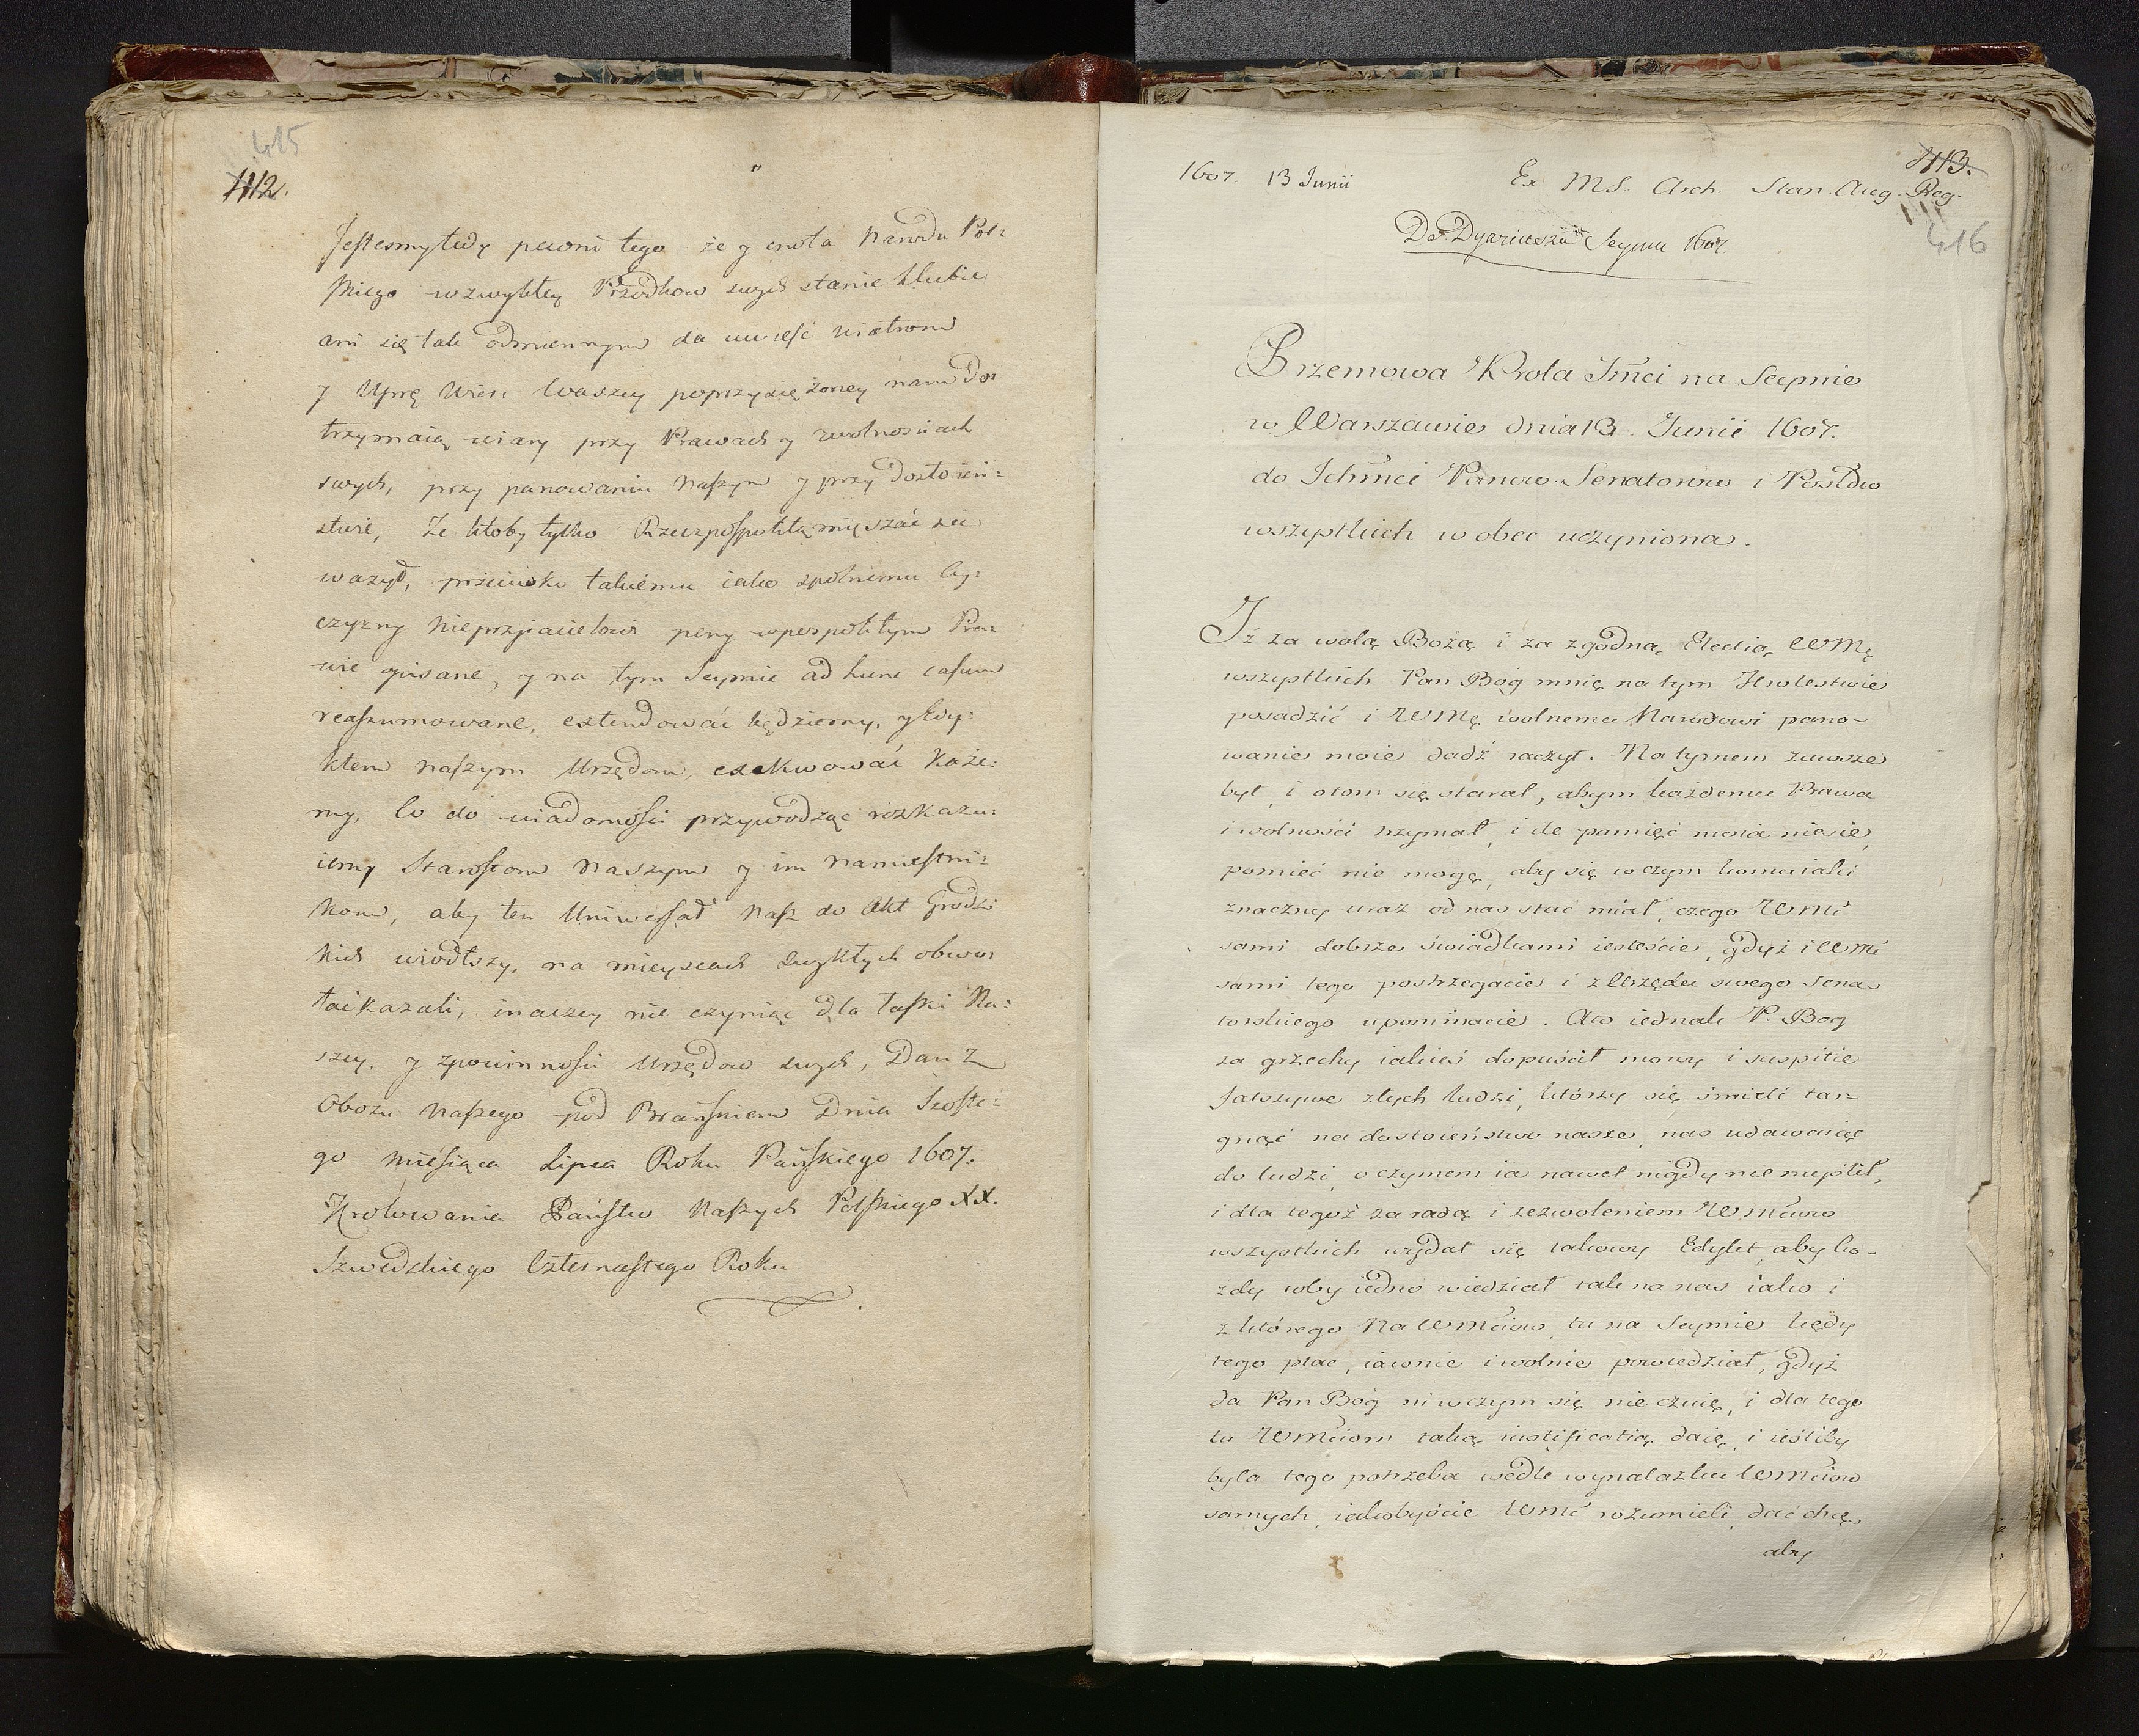 415
412.
Jestesmy tedy pewni tego że y cnota Narodu Pol=
skiego wzwykłey Przodkow swych stanie kłubie
ani się tak odmiennym da uwieść wiatrom
y Uprz: Wier: Waszey poprzysiężoney nam Do=
trzymaią wiary przy Prawach y wolnosciach
swych, przy panowaniu Naszym y przy Dostoień=
stwie, Ze ktoby tylko Rzeczpospolitą mięszać sie
ważył, przeciwko takiemu iako spolnemu Oy=
czyzny Nieprzyiacielowi peny w pospolitym Pra=
wie opisane, y na tym Seymie ad hunc casum
reassumowane, extendować będziemy, y Edy=
ktem Naszym Urzędom, exekwować każe=
my, Co do wiadomości przywodząc rozkazu=
iemy Starostom Naszym y im Namiestni=
kom, aby ten Uniwersał Nasz do Akt Grodz
kich wiodłszy, na mieyscach zwykłych obwo=
łać kazali, inaczey nie czyniąc dla łaski Na=
szey. y zpowinności Urzędow swych, Dan Z
Obozu Naszego pod Brańskiem Dnia Szoste=
go Miesiąca Lipca Roku Pańskiego 1607.
Krolowania Państw Naszych Polskiego XX.
Szwedzkiego Czternastego Roku
1607. 13 Junii
Ex MS. Arch. Stan. Aug. Reg.
413.
416
Do Dyariusza Seymu 1607.
Przemowa Krola Jmci na Seymie
w Warszawie dnia 13. Junii 1607.
do Ichmci Panow Senatorow i Posłow
wszystkich w obec uczyniona.
Iż za wolą Bożą i za zgodną Electią WMę
wszystkich Pan Bóg mnię na tym Krolestwie
posadzić i WMę wolnemu Narodowi pano-
wanie moie dadź raczył. Na tymem zawsze
był, i otom się starał, abym każdemu Prawa
i wolności trzymał, i ile pamięć moia niesie,
pomięć nie mogę, aby się w czym komu iaki
znaczny uraz od nas stać miał, czego WMć
sami dobrze świadkami iesteście, gdyż i WMć
sami tego postrzegacie i z Urzędu swego Sena-
torskiego upominacie. Aw iednak P. Bog
za grzechy iakieś dopuścił mowy i suspitie
fałszywe złych ludzi, którzy się śmieli tar-
gnąć na dostoieństwo nasze, nas udawaiąc
do ludzi, o czymem ia nawet nigdy nie myślił,
i dla tegoż za radą i zezwoleniem WMciow
wszystkich wydał się takowy Edykt, aby ka-
żdy coby iedno wiedział tak na nas iako i
z którego Na WMciow, tu na Seymie kiedy
tego plac, iawnie i wolnie powiedział, gdyż
da Pan Bóg ni w czym się nie czuię, i dla tego
tu WMciom taką iustificatią daię, i ieśliby
była tego potrzeba wedle wynalazku WMciow
samych, iakobyście WMć rozumieli, dać chcę.
aby